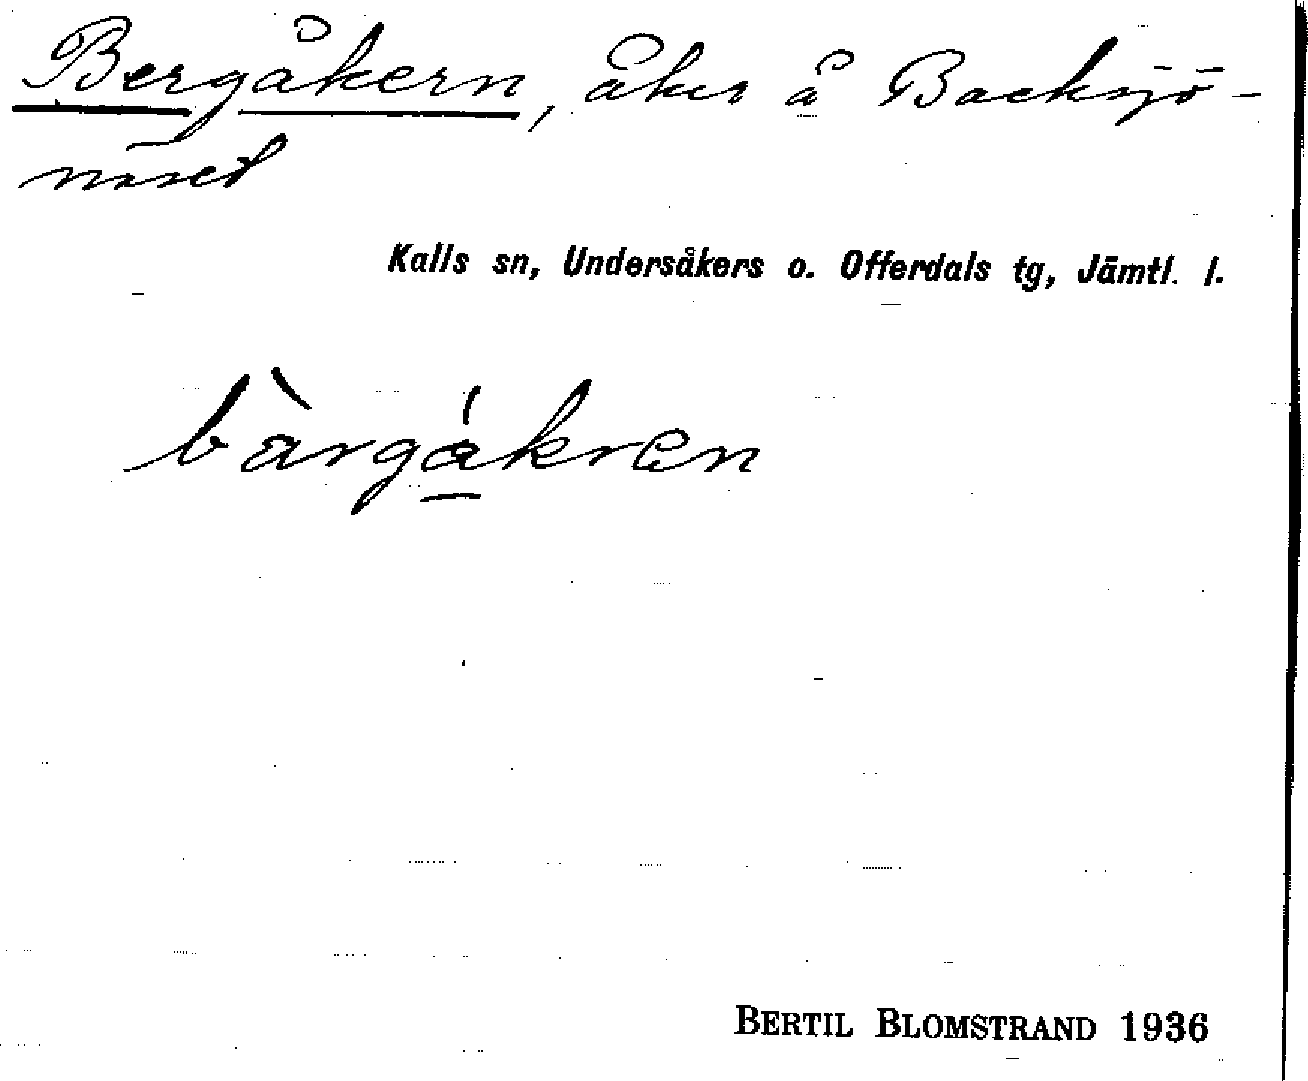 Bergåkern, åker å Backsjö-
näset
Kalls sn, Undersåkers o. Offerdals tg, Jämtl. l.
bàrgákren
BERTIL BLOMSTRAND 1936